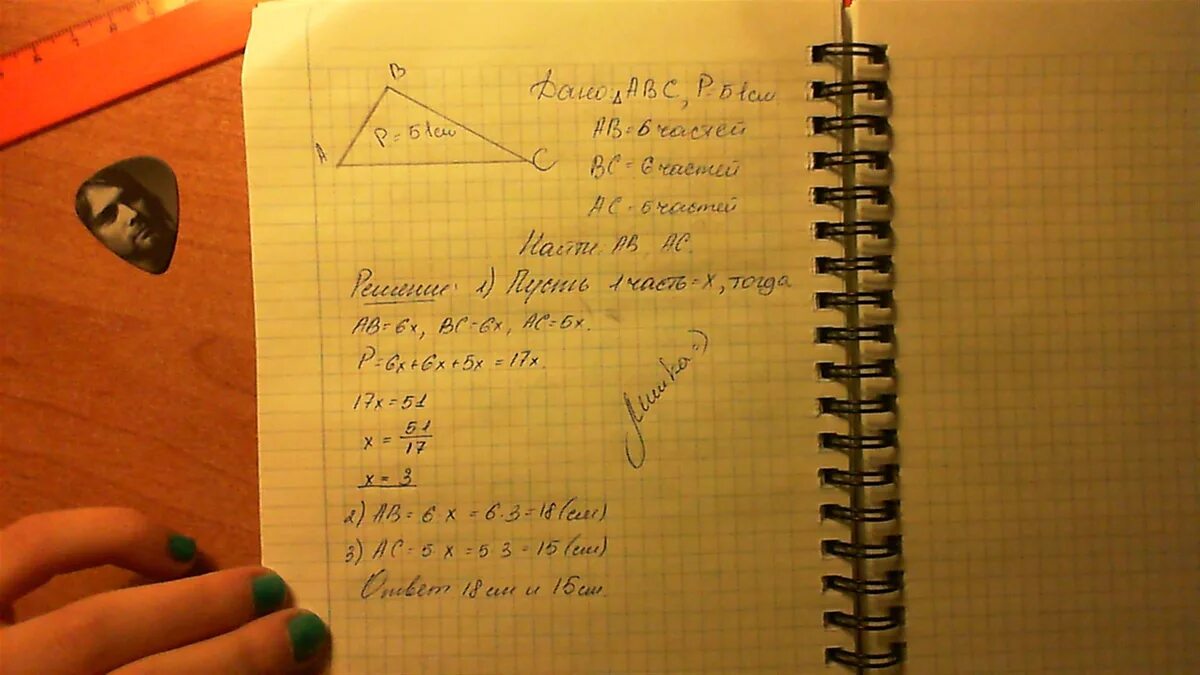 B
Дано, △ABC, P=51см
P=51см
AB=6 частей
A
C
BC=6 частей
AC=5 частей
Найти: AB, AC.
Решение: 1) Пусть 1 часть=x, тогда
AB=6x, BC=6x, AC=5x.
P=6x+6x+5x=17x.
17x=51
x=51/17
x=3
2) AB=6·x=6·3=18(см)
3) AC=5·x=5·3=15(см)
Ответ 18см и 15см.